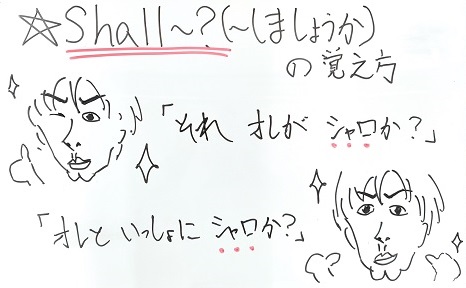 ☆Shall～?(～しましょうか)
の覚え方
「それ オレが シャロか?」
「オレと いっしょに シャロか?」